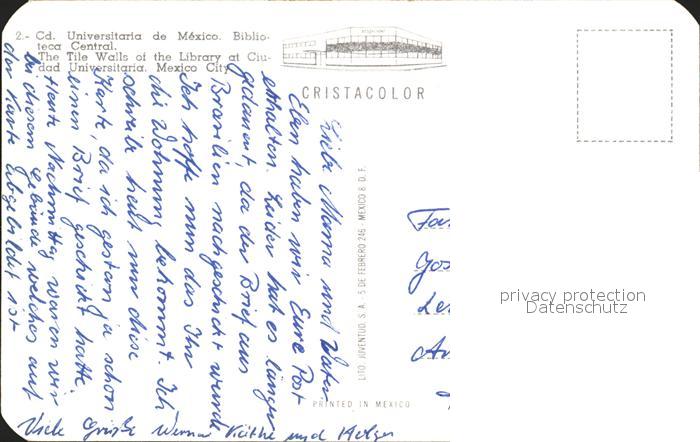 2.- Cd. Universitaria de México. Biblio-
teca Central.
The Tile Walls of the Library at Ciu-
dad Universitaria. Mexico City
CRISTACOLOR
LITO JUVENTUD, S. A. 5 DE FEBRERO 246 - MEXICO 8, D. F.
PRINTED IN MEXICO
Liebe Mama und Vater
Eben haben wir Eure Post
erhalten. Leider hat es länger
gedauert da der Brief aus
Brasilien nachgeschickt wurde
Ich hoffe nun das Ihr
die Wohnung bekommt. Ich
schreibe heut nur diese
Karte, da ich gestern ja schon
einen Brief geschickt hatte
Heute Nachmittag waren wir
in diesem Gebäude welches auf
der Karte abgebildet ist
Viele Grüße Werner Käthe und Holger
Fa
Jos
Le
privacy protection
Datenschutz